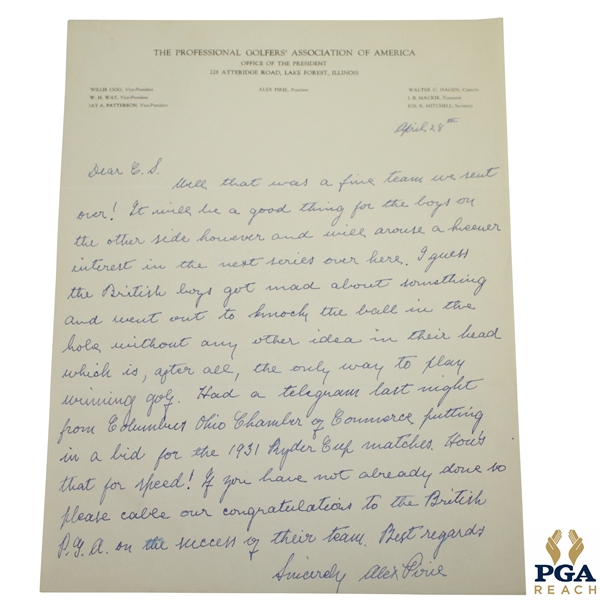 THE PROFESSIONAL GOLFERS' ASSOCIATION OF AMERICA
OFFICE OF THE PRESIDENT
228 ATTERIDGE ROAD, LAKE FOREST, ILLINOIS
WILLIE OGG, Vice-President ALEX PIRIE, President WALTER C. HAGEN, Captain
W. H. WAY, Vice-President J. B. MACKIE, Treasurer
JAY A. PATTERSON, Vice-President JOS. R. MITCHELL, Secretary
April 28th
Dear E. S.
Well that was a fine team we sent
over! It will be a good thing for the boys on
the other side however and will arouse a keener
interest in the next series over here. I guess
the British boys got mad about something
and went out to knock the ball in the
hole without any other idea in their head
which is, after all, the only way to play
winning golf. Had a telegram last night
from Columbus Ohio Chamber of Commerce putting
in a bid for the 1931 Ryder Cup matches. How's
that for speed! If you have not already done so
please cable our congratulations to the British
P.G.A. on the success of their team. Best regards
Sincerely Alex Pirie
PGA
REACH